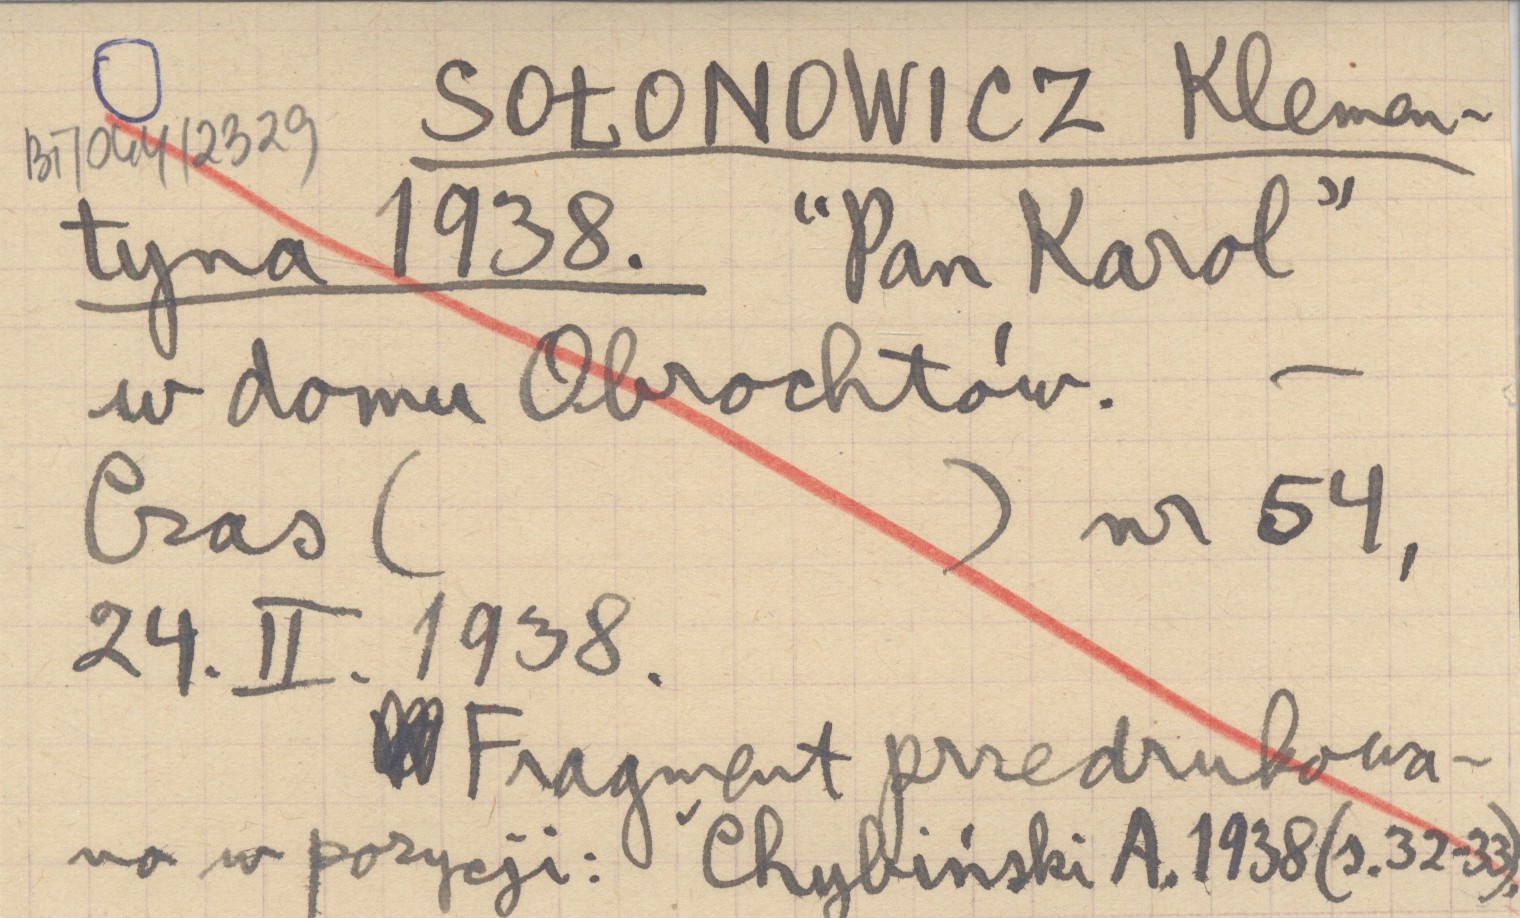 SOŁONOWICZ Klemen-
BT/044/2329
tyna 1938. "Pan Karol"
w domu Obrochtów. —
Czas ( ) nr 54,
24. II. 1938.
Fragment przedrukowa-
no w pozycji: Chybiński A. 1938 (s. 32-33).